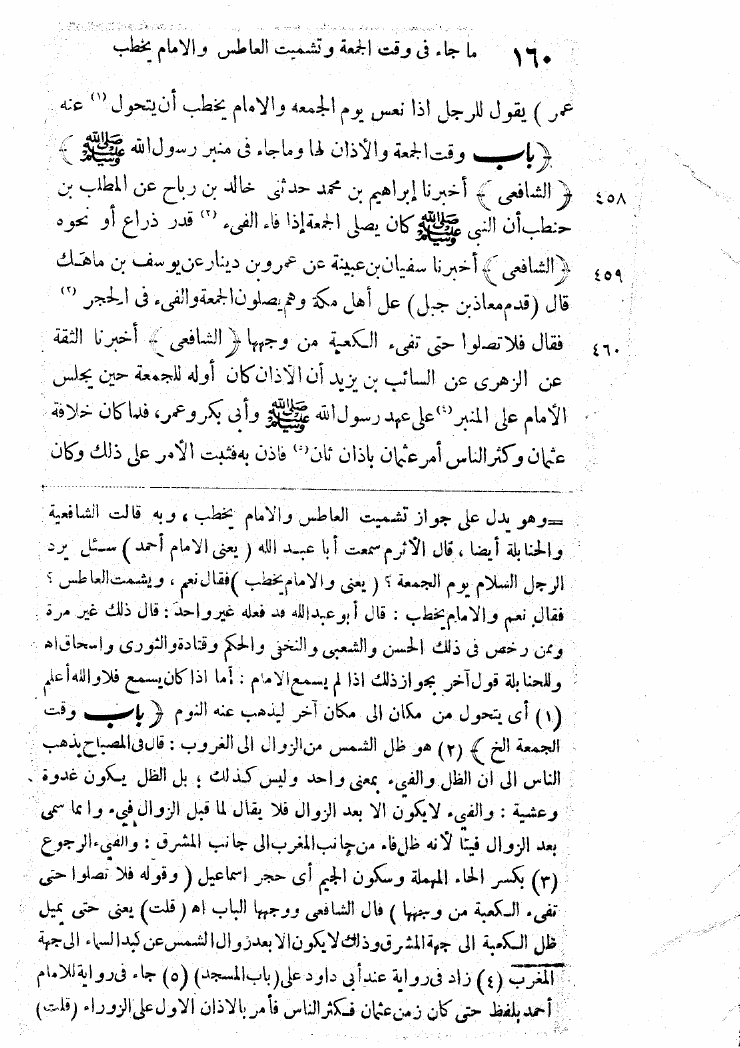 ١٦٠ ما جاء فى وقت الجمعة وتشميت العاطس والامام يخطب
عمر ) يقول للرجل اذا نعس يوم الجمعه والامام يخطب أن يتحول (١) عنه
﴿ باب وقت الجمعة والأذان لها وما جاء فى منبر رسول الله ﷺ ﴾
٤٥٨ ﴿ الشافعى ﴾ أخبرنا إبراهيم بن محمد حدثنى خالد بن رباح عن المطلب بن
حنطب أن النبى ﷺ كان يصلى الجمعة إذا فاء الفىء (٢) قدر ذراع أو نحوه
٤٥٩ ﴿ الشافعى ﴾ أخبرنا سفيان بن عيينة عن عمرو بن دينار عن يوسف بن ماهك
قال ( قدم معاذ بن جبل ) على أهل مكة وهم يصلون الجمعة والفىء فى الحجر (٣)
٤٦٠ فقال فلا تصلوا حتى تفىء الكعبة من وجهها ﴿ الشافعى ﴾ أخبرنا الثقة
عن الزهرى عن السائب بن يزيد أن الأذان كان أوله للجمعة حين يجلس
الأمام على المنبر (٤) على عهد رسول الله ﷺ وأبى بكر وعمر، فلما كان خلافة
عثمان وكثر الناس أمر عثمان باذان ثان (٥) فاذن به فثبت الأمر على ذلك وكان
=وهو يدل على جواز تشميت العاطس والامام يخطب ، وبه قالت الشافعية
والحنابلة أيضا ، قال الأثرم سمعت أبا عبد الله ( يعنى الامام أحمد ) سئل يرد
الرجل السلام يوم الجمعة ؟ ( يعنى والامام يخطب ) فقال نعم ، ويشمت العاطس ؟
فقال نعم والامام يخطب : قال أبو عبد الله قد فعله غير واحد : قال ذلك غير مرة
وممن رخص فى ذلك الحسن والشعبى والنخعى والحكم وقتادة والثورى واسحاق اه
وللحنابلة قول آخر بجواز ذلك اذا لم يسمع الامام : أما اذا كان يسمع فلا والله أعلم
(١) أى يتحول من مكان الى مكان آخر ليذهب عنه النوم ﴿ باب وقت
الجمعة الخ ﴾ (٢) هو ظل الشمس من الزوال الى الغروب : قال فى المصباح يذهب
الناس الى ان الظل والفىء بمعنى واحد وليس كذلك ؛ بل الظل يكون غدوة
وعشية : والفىء لا يكون الا بعد الزوال فلا يقال لما قبل الزوال فىء وانما سمى
بعد الزوال فيئا لأنه ظل فاء من جانب المغرب الى جانب المشرق : والفىء الرجوع
(٣) بكسر الحاء المهملة وسكون الجيم أى حجر اسماعيل ( وقوله فلا تصلوا حتى
تفىء الكعبة من وجهها ) قال الشافعى ووجهها الباب اه ( قلت ) يعنى حتى يميل
ظل الكعبة الى جهة المشرق وذلك لا يكون الا بعد زوال الشمس عن كبد السماء الى جهة
المغرب (٤) زاد فى رواية عند أبى داود على ( باب المسجد ) (٥) جاء فى رواية للامام
أحمد بلفظ حتى كان زمن عثمان فكثر الناس فأمر بالاذان الاول على الزوراء ( قلت )